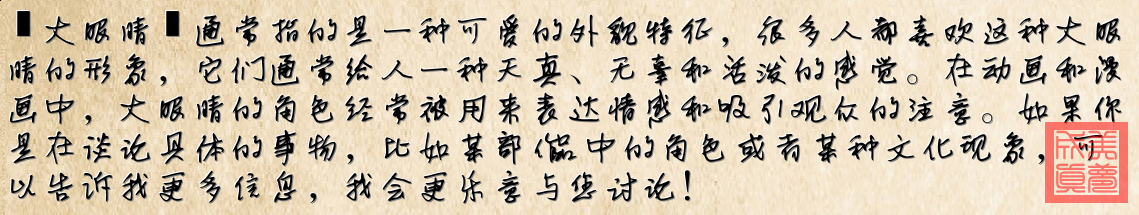 大眼睛 通常指的是一种可爱的外貌特征，很多人都喜欢这种大眼
睛的形象，它们通常给人一种天真、无辜和活泼的感觉。在动画和漫
画中，大眼睛的角色经常被用来表达情感和吸引观众的注意。如果你
是在谈论具体的事物，比如某部作品中的角色或者某种文化现象，可
以告诉我更多信息，我会更乐意与您讨论！